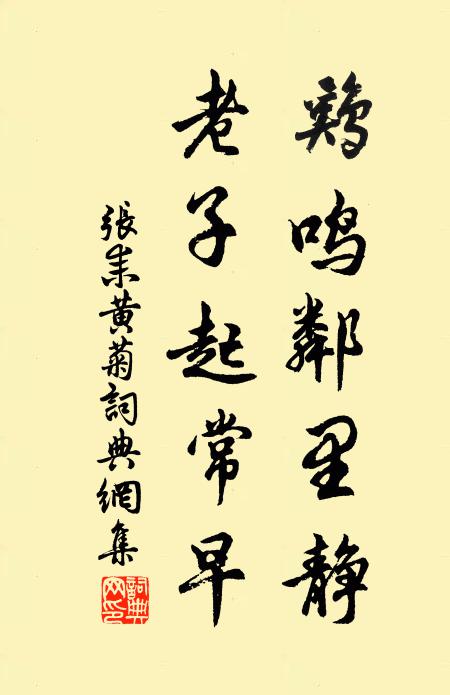 鷄鳴鄰里靜
老子起常早
張耒黃菊詞典網集
詞典網印